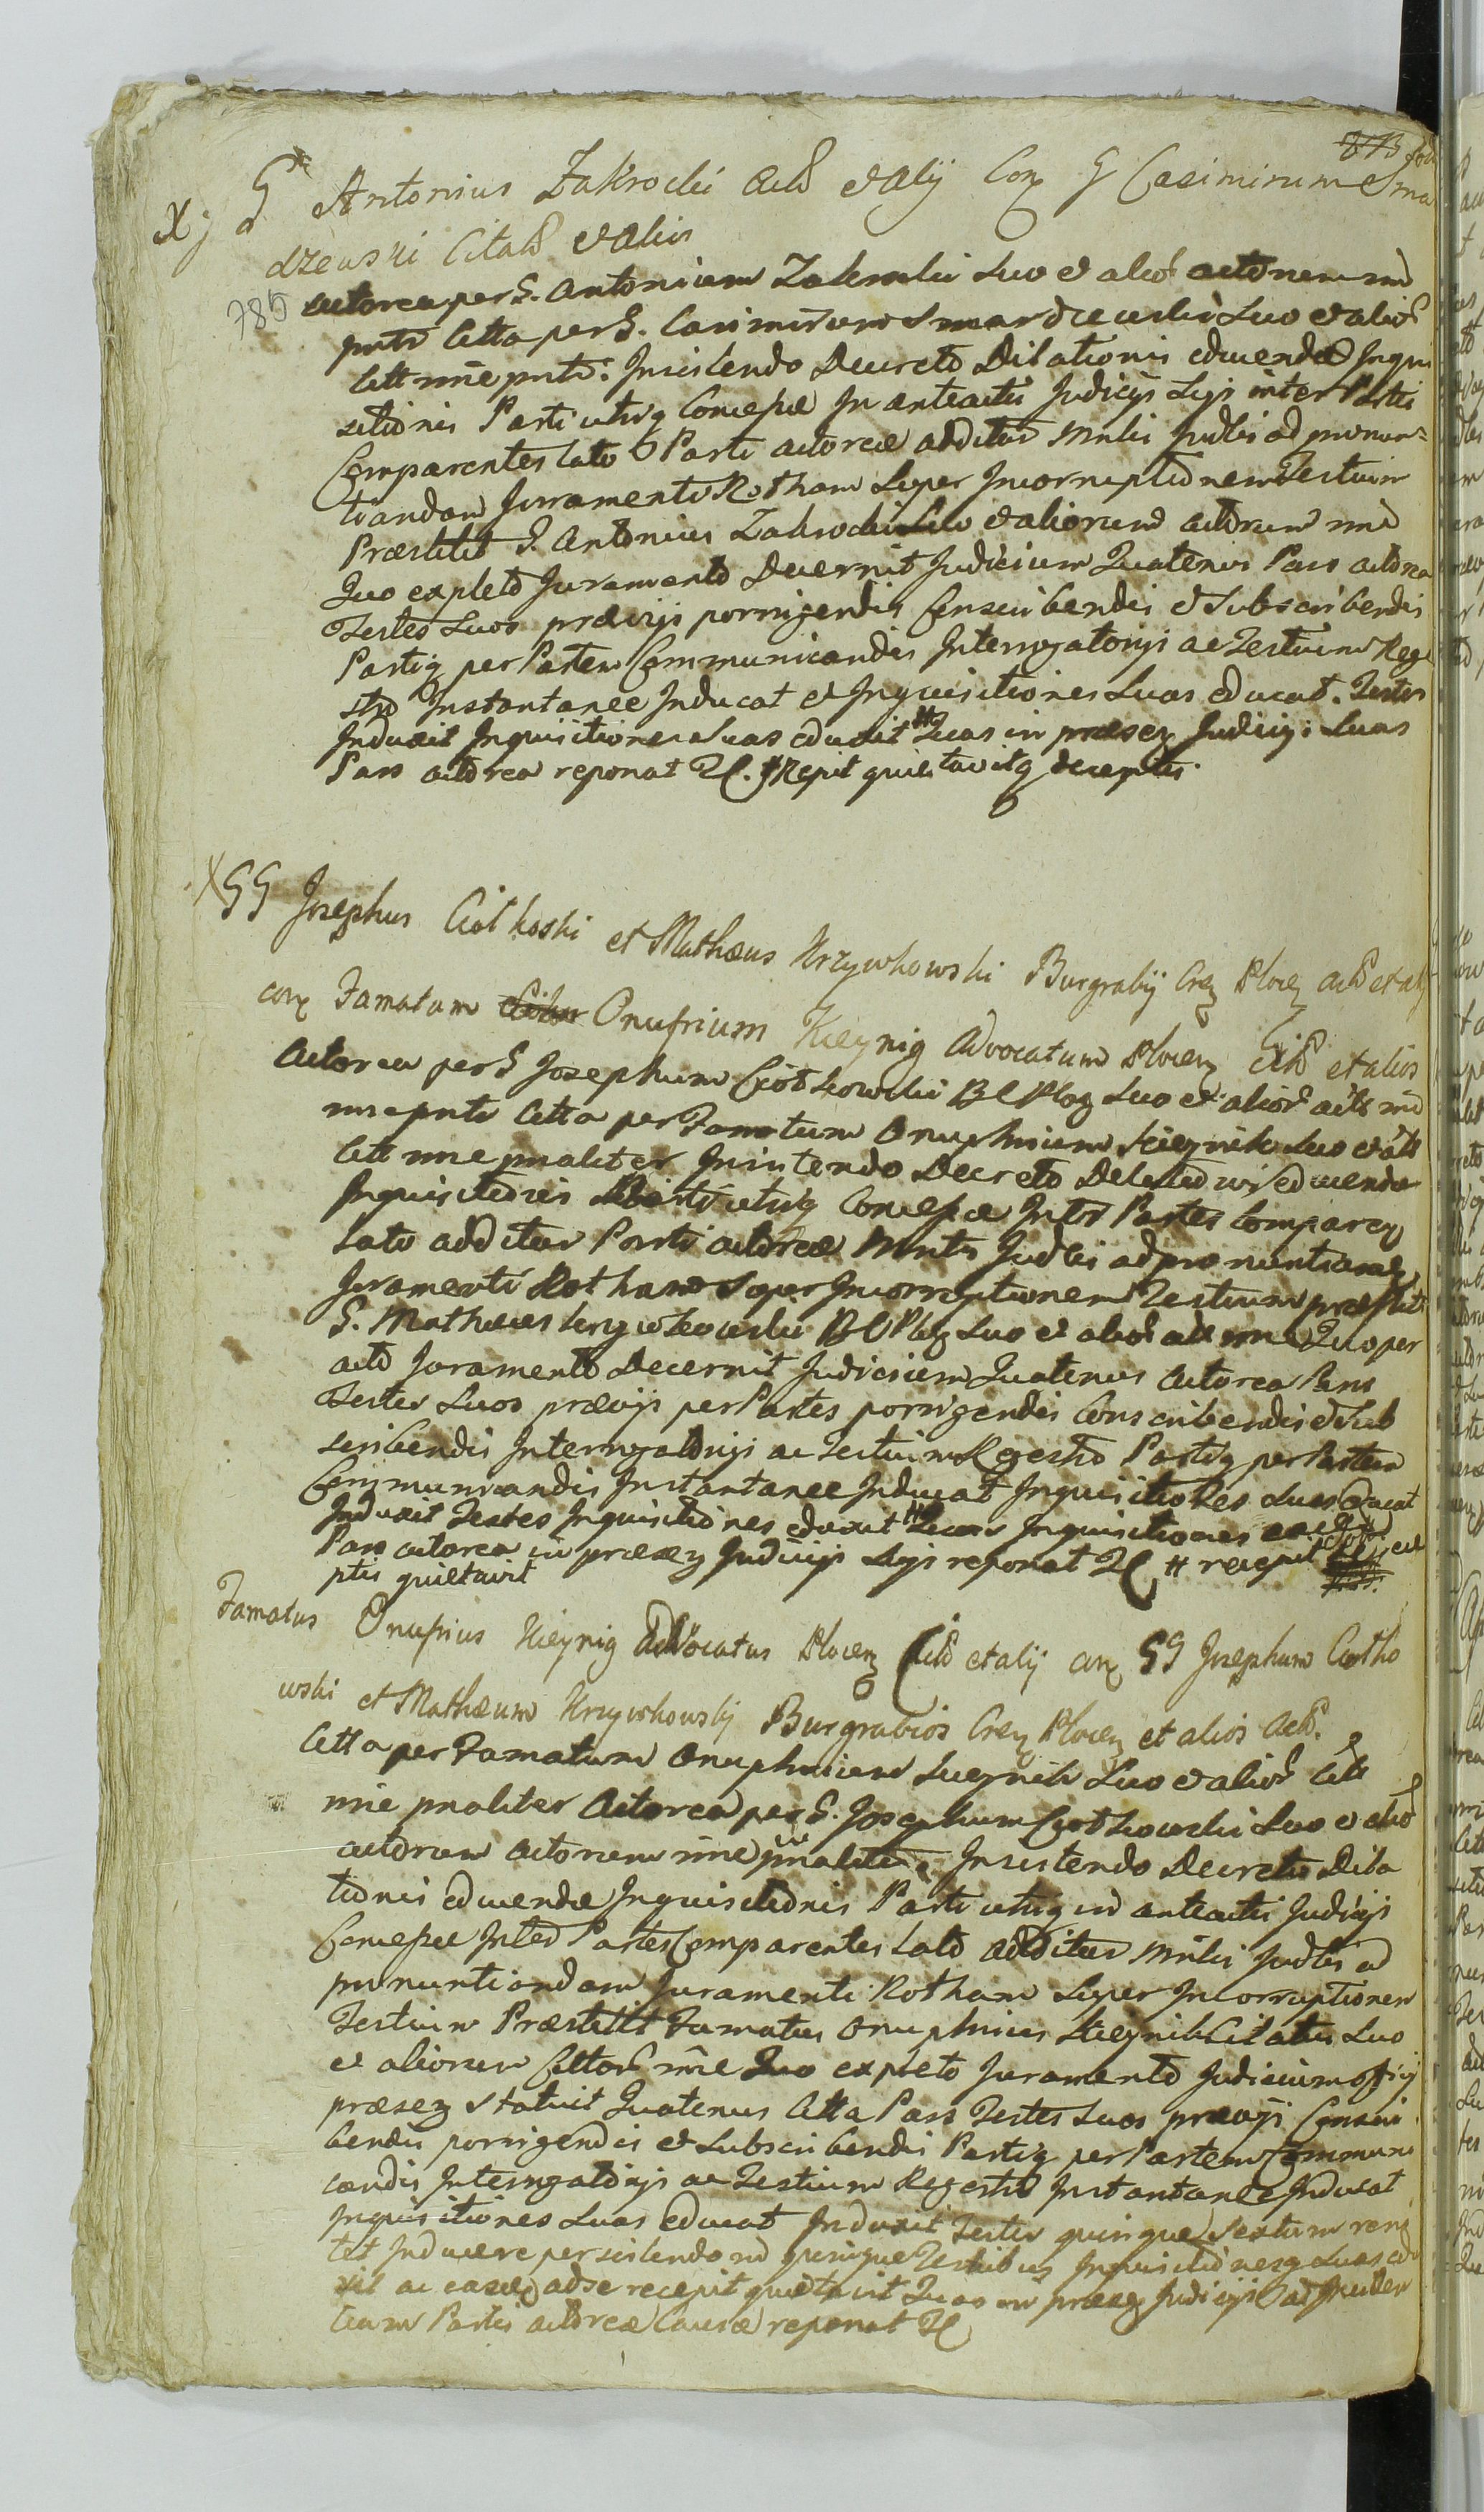 X G Antonius Zakrocki Actd et Alij Conx G Casimirum Smar
dzewski Citatd et Alios
785 Actorea per G. Antonium Zakrocki Suo et aliod actd nem nnie
pnte Citta per G. Casimirum Smardzewski Suo et aliod
Citt nnie pnte: Insistendo Decreto Dilationis educendæ Inqui
sitionis Parti utriq Concessæ In anteactis Judicijs Sijs inter Partes
Comparentes lato Parti actoreæ additur Mnlis Judlis ad pronun=
tiandam Juramenti Rotham Super Incorruptionem Testium
Præstitit G. Antonius Zakrocki Suo et aliorum actorum nnie
Quo expleto Juramento Decernit Judicium Quatenus Pars actorea
Testes Suos prævijs porrigendis Conscribendis et Subscribendis
Partiq per Partem Communicandis Interrogatorijs ac Testium Rege
stro Instantanee Inducat et Inquisitiones Suas educat. Testes
Induxit Inquisitiones Suas eduxit # Quas in præsez Judicijs Suas
Pars actorea reponat # Repit quietavitq deceptis.
X GG Josephus Ciotkoski et Mathæus Krzywkowski Burgrabij Crez Plocz actd et alij
conx Famatum Onufrium Kieynig Advocatum Plocen Citd et alios
Actorea per G Josephum Ciotkowski BC Plog Suo et aliod actd nnie
nnie pnte Citta per Famatum Onuphrium Kieynik Suo et ald
Citt nnie pnaliter Insistendo Decreto Dilationis educendæ
Inquisitionis Parti utriq Concessæ Inter Partes Comparen
lato additur Parti actoreæ Mnlis Judlis ad pronuntiand
Juramenti Rotham Super Incorruptionem Testium præstit
G. Mathæus Krzywkowski BC Plog Suo et aliod act nnie Quo per
acto Juramento Decernit Judicium Quatenus Actorea Pars
Testes Suos prævijs per Partes porrigendis Conscribendis et Sub
scribendis Interrogatorijs ac Testium Regestro Partiq per Partem
Communicandis Instantanee Inducat Inquisitiones Suas Educat
Induxit Testes Inquisitiones eduxit # Quas Inquisitiones
Pars actorea in præsez Judicijs Sijs reponat # recepit
ptis quietavit
Famatus Onufrius Kieynig Advocatus Plocen Citd et alij conx GG Josephum Ciotko
wski et Mathæum Krzywkowskj Burgrabios Crez Plocen et alios Actd.
Citta per Famatum Onuphrium Kieynik Suo et aliod Citt
nnie pnaliter Actorea per G. Josephum Ciotkowski Suo et aliod
actorum actorum nnie pnaliter Insistendo Decreto Dila
tionis educendæ Inquisitionis Parti utriq in anteactis Judicijs
Concessæ Inter Partes Comparentes lato additur Mnlis Judlis ad
pronuntiandam Juramenti Rotham Super Incorruptionem
Testium Præstitit Famatus Onuphrius Kieynik Citatus Suo
et aliorum Cittod nnie Quo expleto Juramento Judicium officij
præsez Statuit Quatenus Citta Pars Testes Suos prævijs Conscri
bendis porrigendis et Subscribendis Partiq per Partem Communi
candis Interrogatorijs ac Testium Regestro Instantanee Inducat
Inquisitiones Suas educat Induxit Testes quinque Sextum reni
tet Inducere persistendo in quinque Testibus Inquisitionesq Suas edu
xit ac easdem ad se recepit quietavit Quas in præsez Judicijs ad Inciden
tiam Partis actoreæ Causæ reponat